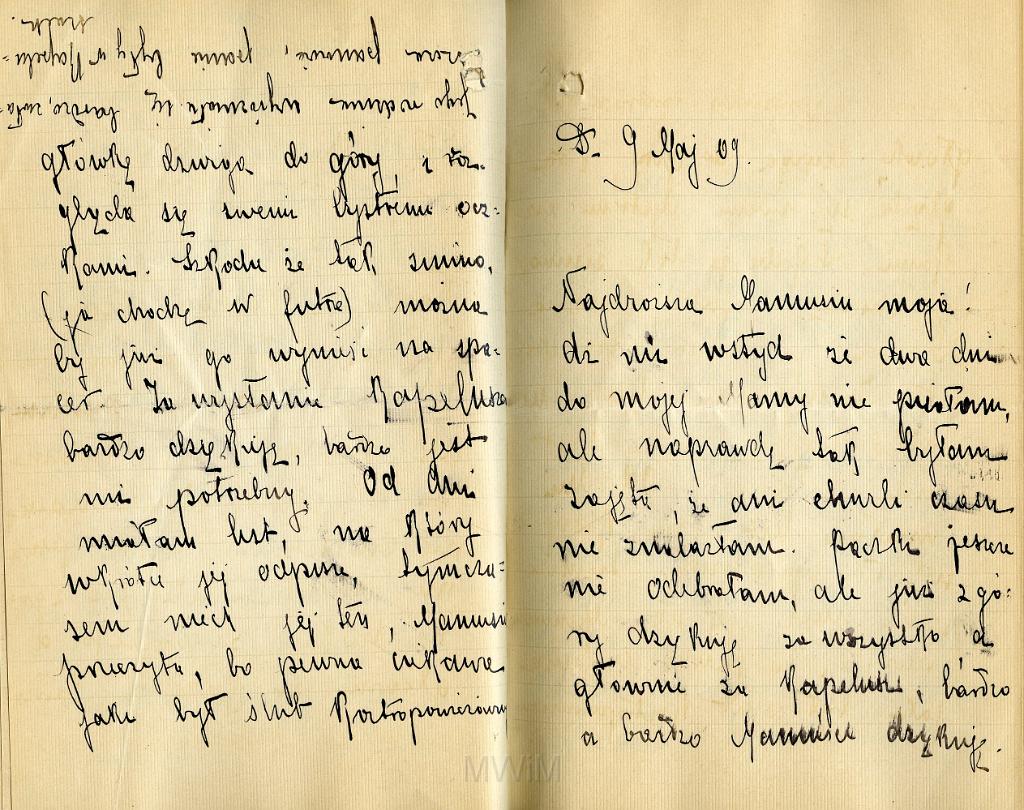 D. 9 Maj 09.
Najdroższa Mamusiu moja!
dź mi wstyd że dwa dni
do mojej Mamy nie pisałam,
ale naprawdę tak byłam
zajętą, że ani chwili czasu
nie znalazłam. Paczki jeszcze
nie odebrałam, ale już z gó-
ry dziękuję za wszystko a
głównie za kapelusz, bardzo
a bardzo Mamusi dziękuję.
główkę dźwiga do góry, i roz-
gląda się swemi bystremi ocz-
kami. Szkoda że tak zimno,
(ja chodzę w futrze) można
by już go wynieść na spa-
cer. Za wysłanie kapelusza
bardzo dziękuję, bardzo jest
mi potrzebny. Od Ani
miałam list, na który
wkrótce jej odpiszę, tymcza-
sem niech jej ten, Mamusiu
przeczyta, bo pewna ciekawa
jaki był ślub
panowie, panie były w kapelu-